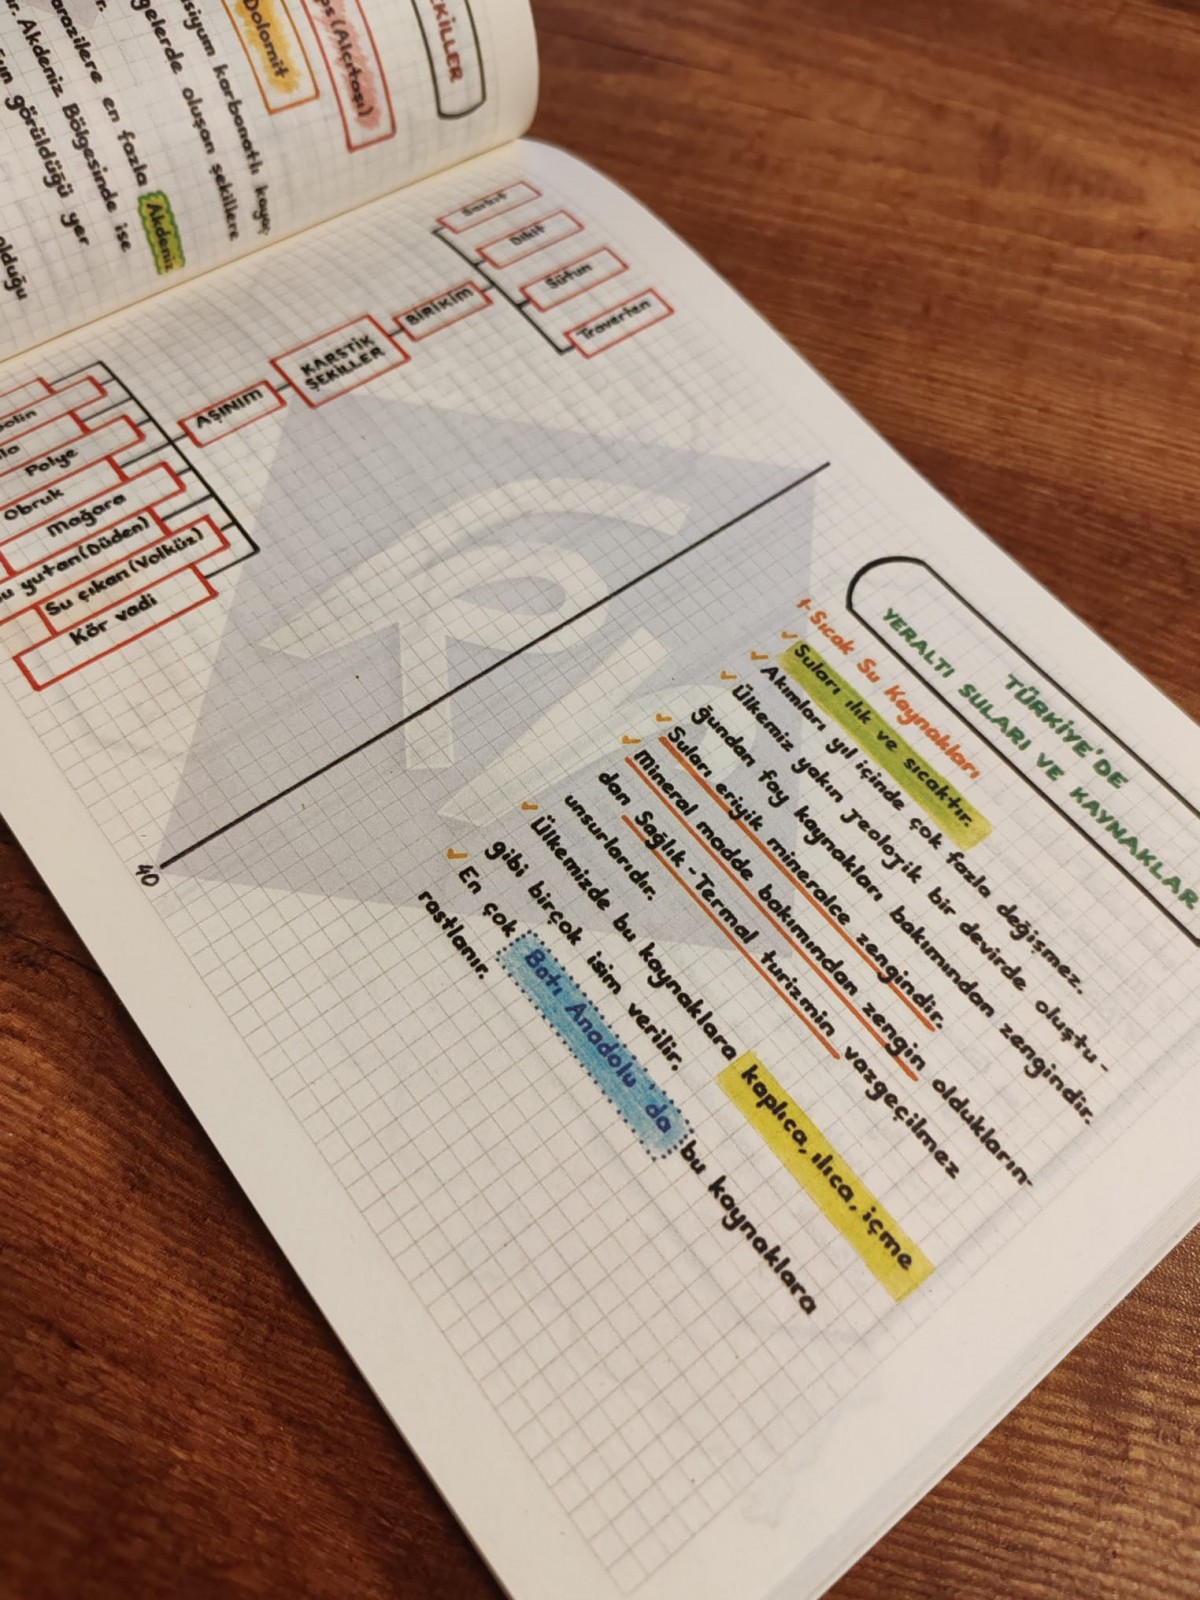 EKİLLER
ps (Alçıtaşı)
Dolomit
siyum karbonatlı kayaç
gelerde oluşan şekillere
arazilere en fazla Akdeniz
r. Akdeniz Bölgesinde ise
görüldüğü yer
olduğu
KARSTİK
ŞEKİLLER
BİRİKİM
Sarkıt
Dikit
Sütun
Traverten
AŞINIM
olin
Polye
Obruk
Mağara
u yutan (Düden)
Su çıkan (Volküz)
Kör vadi
40
TÜRKİYE'DE
YERALTI SULARI VE KAYNAKLAR
1-Sıcak Su Kaynakları
Suları ılık ve sıcaktır.
Akımları yıl içinde çok fazla değişmez.
Ülkemiz yakın Jeolojik bir devirde oluştu-
ğundan fay kaynakları bakımından zengindir.
Suları eriyik mineralce zengindir.
Mineral madde bakımından zengin oldukların-
dan Sağlık-Termal turizmin vazgeçilmez
unsurlarıdır.
Ülkemizde bu kaynaklara kaplıca, ılıca, içme
gibi birçok isim verilir.
En çok Batı Anadolu'da bu kaynaklara
rastlanır.